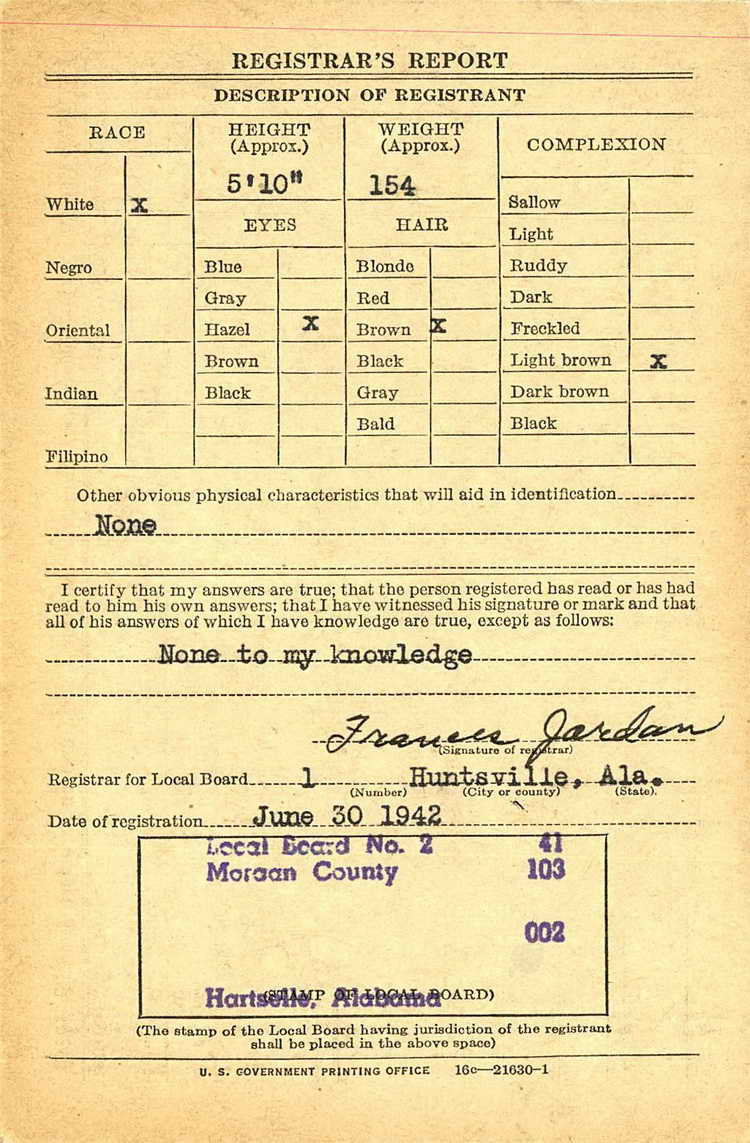 REGISTRAR'S REPORT
DESCRIPTION OF REGISTRANT
RACE
HEIGHT (Approx.)
WEIGHT (Approx.)
COMPLEXION
5'10"
154
White X
Sallow
EYES
HAIR
Light
Negro
Blue
Blonde
Ruddy
Gray
Red
Dark
Oriental
Hazel X
Brown X
Freckled
Brown
Black
Light brown X
Indian
Black
Gray
Dark brown
Bald
Black
Filipino
Other obvious physical characteristics that will aid in identification
None
I certify that my answers are true; that the person registered has read or has had
read to him his own answers; that I have witnessed his signature or mark and that
all of his answers of which I have knowledge are true, except as follows:
None to my knowledge
Frances Jordan
(Signature of registrar)
Registrar for Local Board 1 Huntsville, Ala.
(Number) (City or county) (State).
Date of registration June 30 1942
Local Board No. 2 41
Morgan County 103
002
Hartselle, Alabama
(STAMP OF LOCAL BOARD)
(The stamp of the Local Board having jurisdiction of the registrant
shall be placed in the above space)
U. S. GOVERNMENT PRINTING OFFICE 16c—21630-1